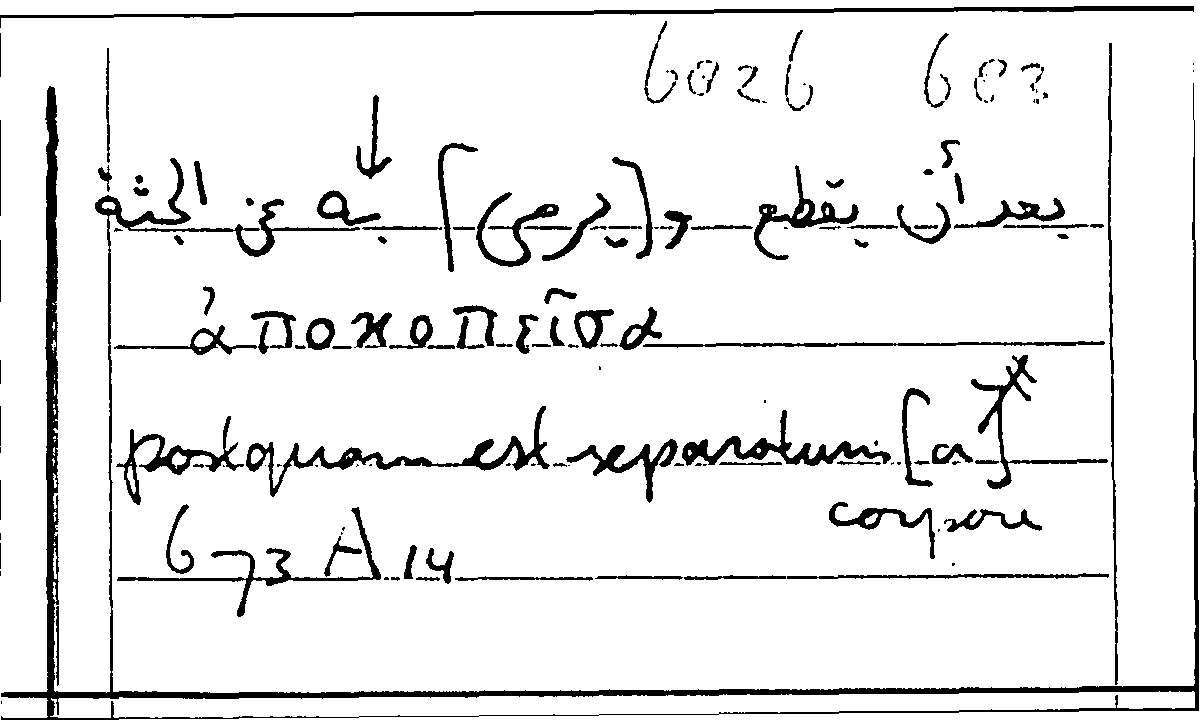 602b 603
بعد أن يقطع و[(يرمى)] به عن الجثة
ἀποκοπεῖσα
postquam est separatum [a]
corpore
673 A 14